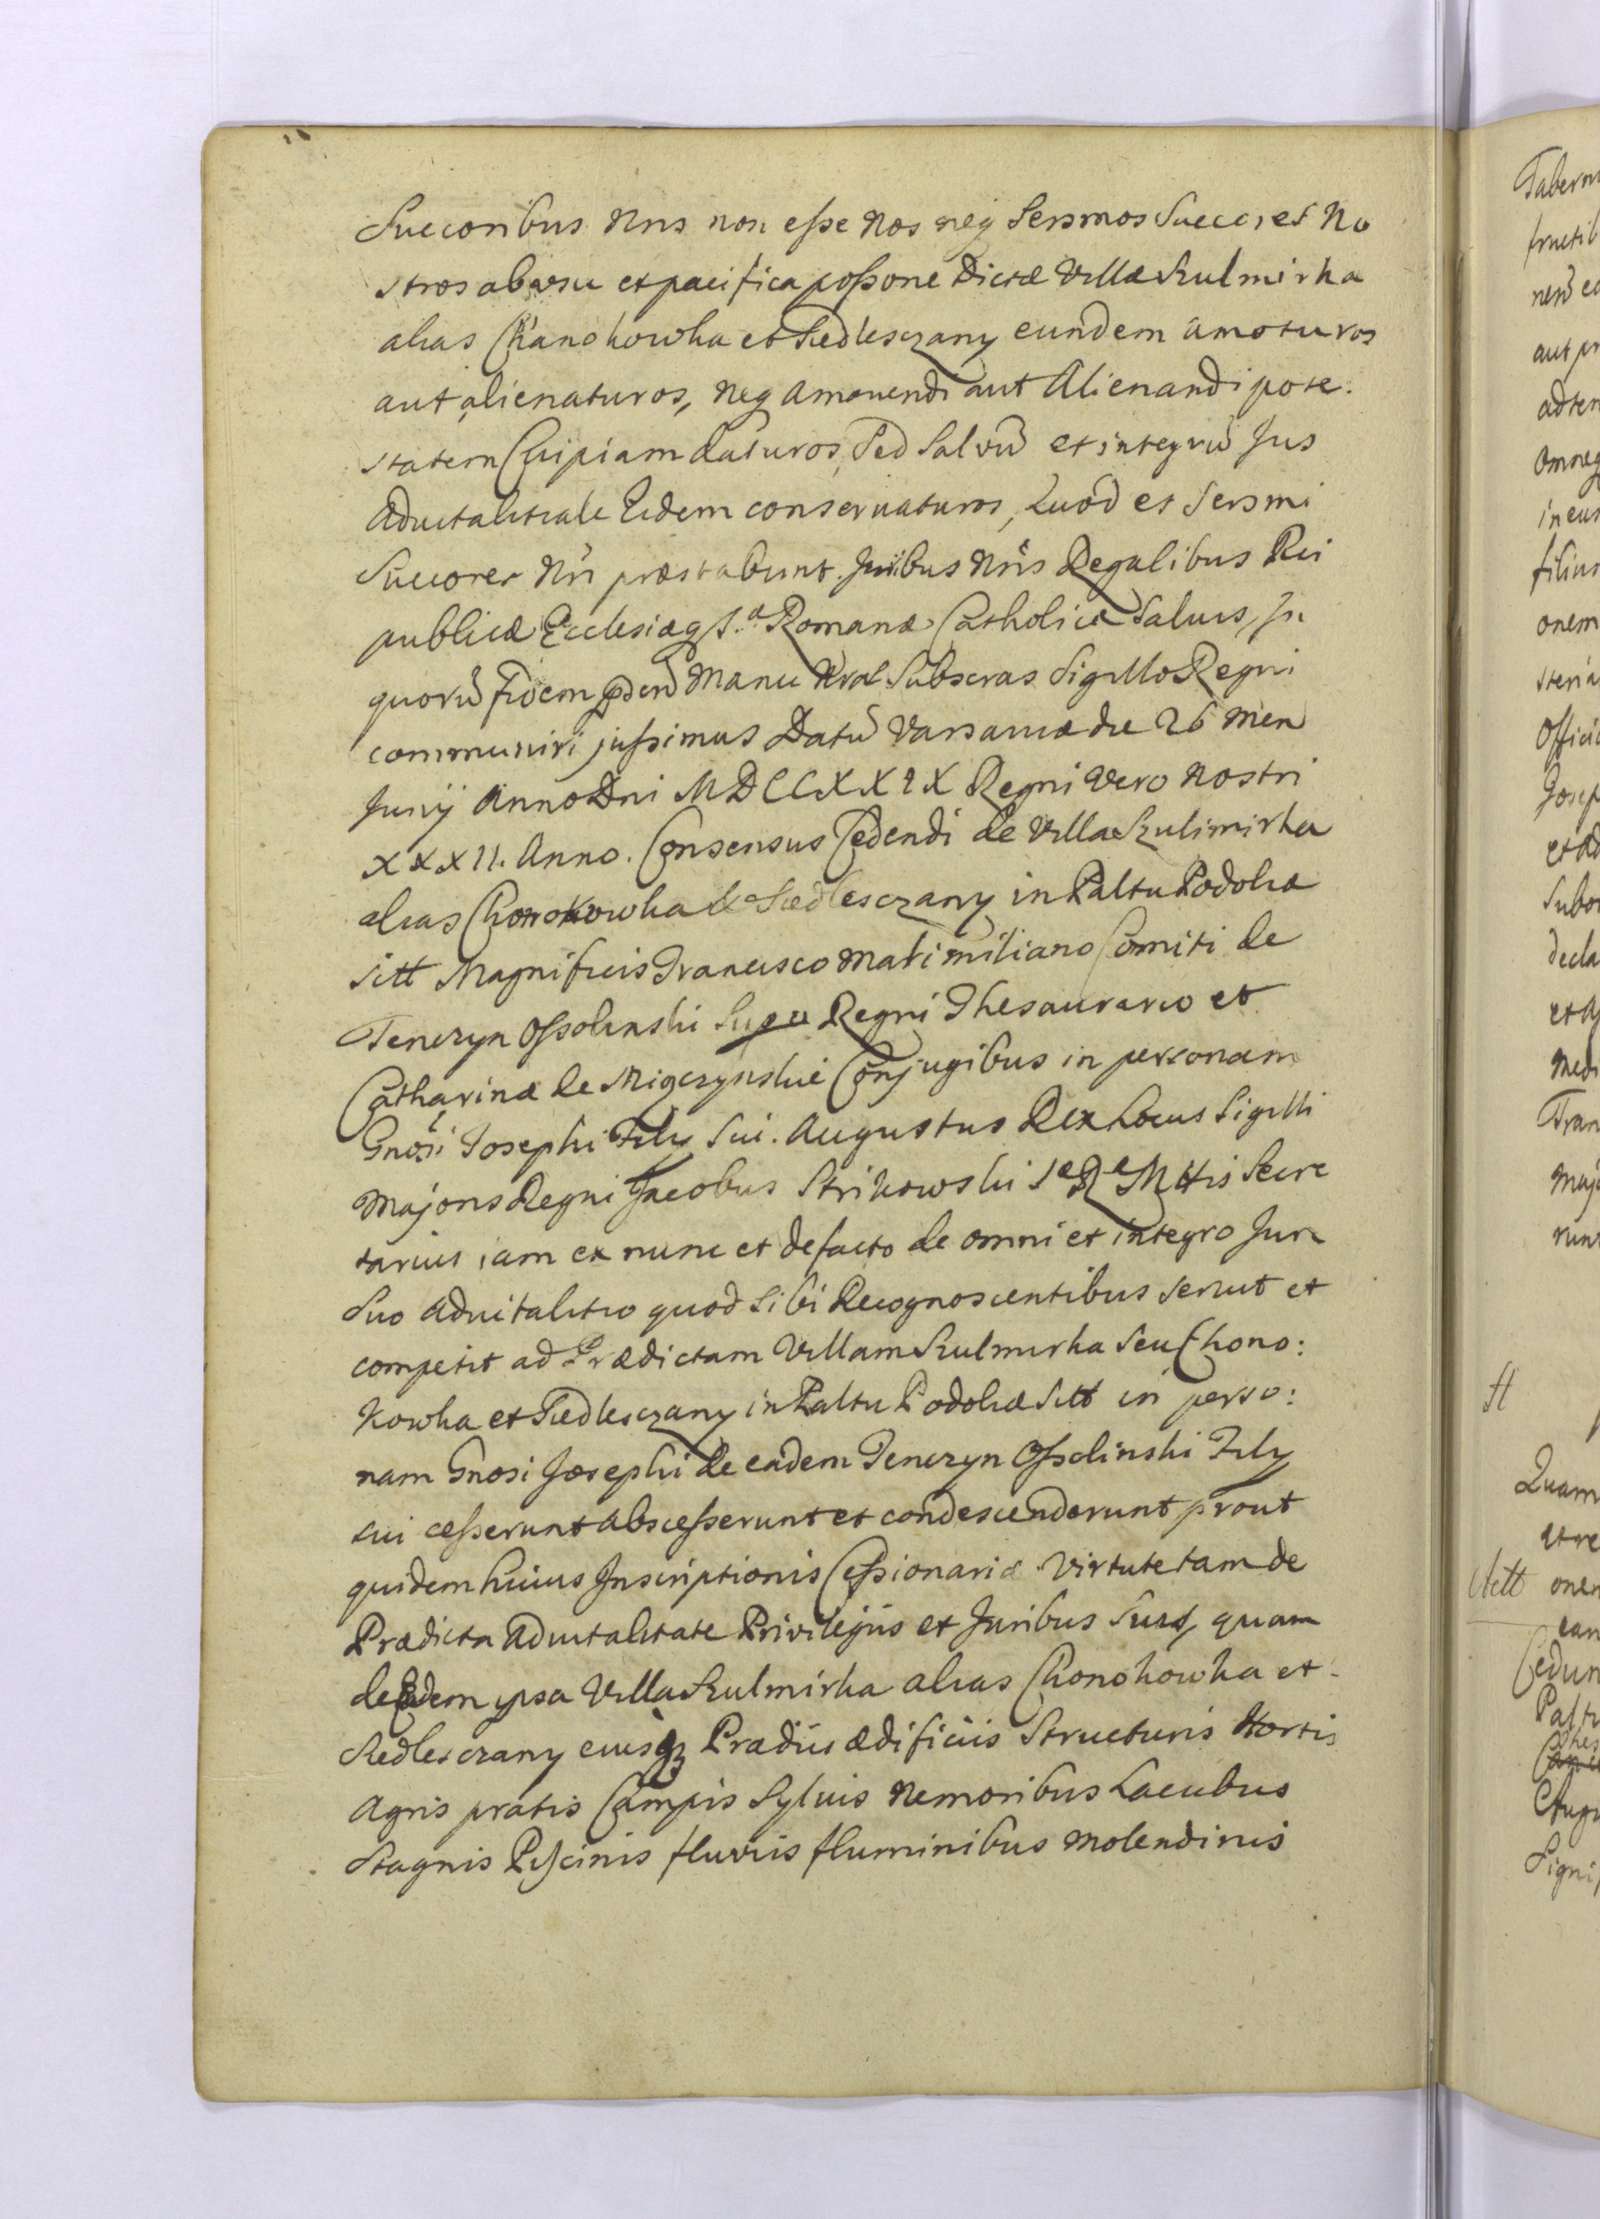 Succoribus Nris non esse Nos neq Sersmos Succores No
stros ab usu et pacifica possone Dictæ Villæ Szulmirka
alias Chanokowka et Siedlesczany eundem amoturos
aut alienaturos, neq amovendi aut Alienandi pote:
statem Cuipiam daturos, Sed Salvũ et integrũ Jus
Advitalitiale Eidem conservaturos, Quod et Sersmi
Succores Nri præstabunt. Juribus Nris Regalibus Rei
publicæ Ecclesiæq S.æ Romanæ Catholicæ Salvis, In
quorũ fidem pñdem Manu Nrâ Subscras Sigillo Regni
communiri jussimus Datũ Varsaviæ die 26 Men
Junij Anno Dni MDCCXXIX Regni Vero Nostri
XXXII. Anno. Consensus Cedendi de Villa Szulimirka
alias Chonokowka & Siedlesczany in Paltu Podoliæ
sitt Magnificis Francisco Maximiliano Comiti de
Tenczyn Ossolinski Supu Regni Thesaurario et
Catharinæ de Miączynskie Conjugibus in personam
Gnosi Josephi Filij Sui. Augustus Rex Locus Sigilli
Majoris Regni Jacobus Strikowski Sæ Ræ Mttis Secre
tarius iam ex nunc et de facto de omni et integro Jure
Suo advitalitio quod Sibi Recognoscentibus servit et
competit ad Prædictam Villam Szulmirka Seu Chono:
kowka et Siedlesczany in Paltu Podoliæ Sitt in perso:
nam Gnosi Josephi de eadem Tenczyn Ossolinski Filij
sui cesserunt abscesserunt et condescenderunt prout
quidem huius Inscriptionis Cessionariæ virtute tam de
Prædicta Advitalitate Privilegijs et Juribus Suis, quam
de Eadem ipsa Villa Szulmirka alias Chonokowka et
Siedlesczany eiusq Prædiis ædificiis Structuris Hortis
Agris pratis Campis Sylvis Nemoribus Lacubus
Stagnis Piscinis fluviis fluminibus molendinis